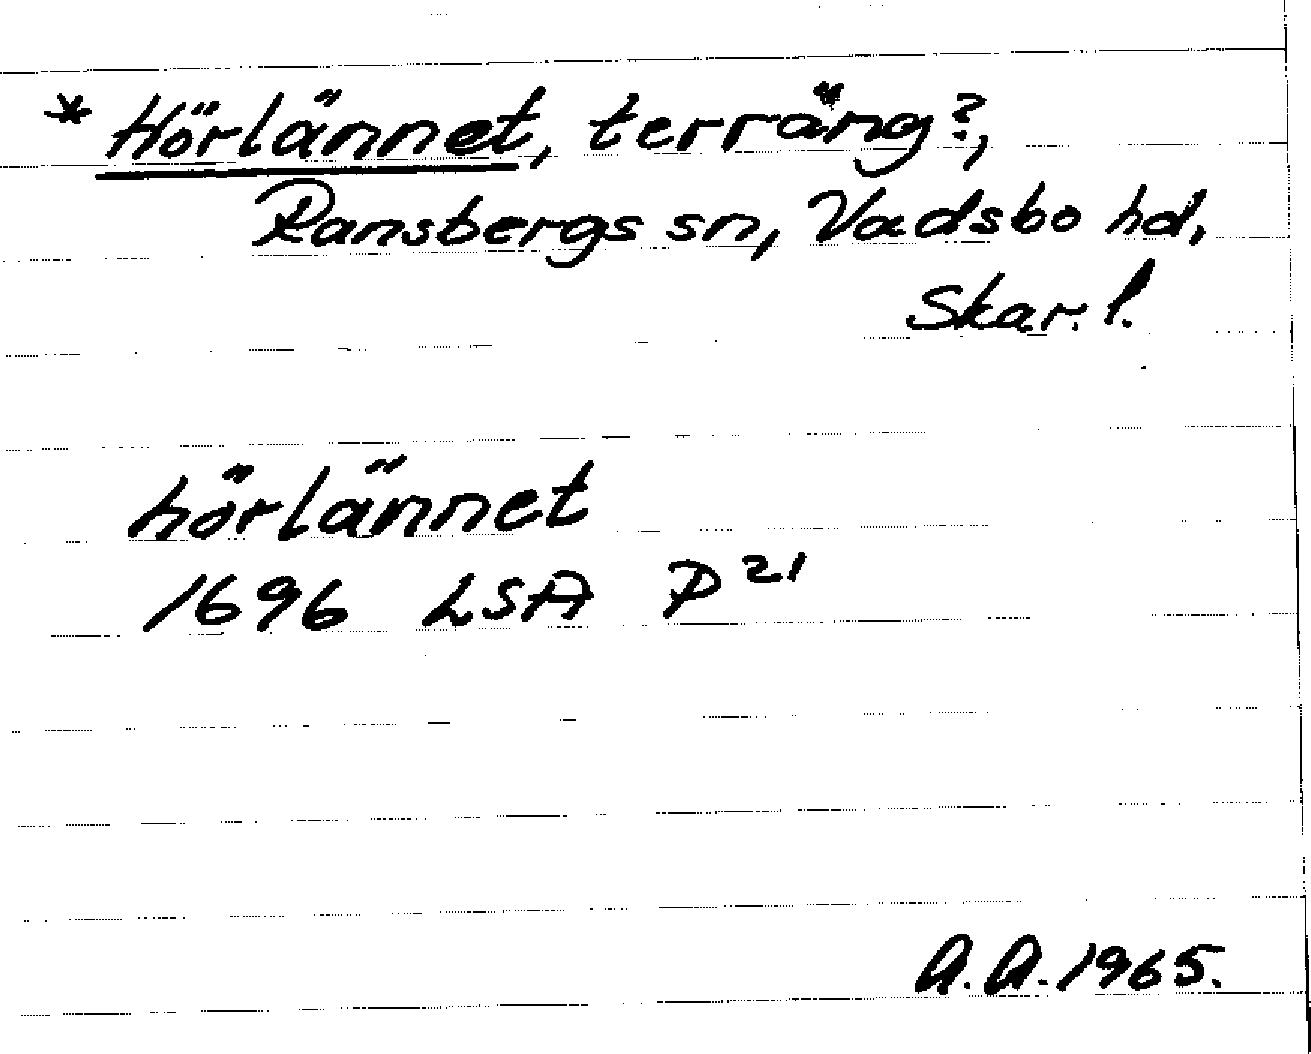 * Hörlännet, terräng?,
Ransbergs sn, Vadsbo hd,
Skar. l.
hörlännet
1696 LSA P 21
A.A. 1965.